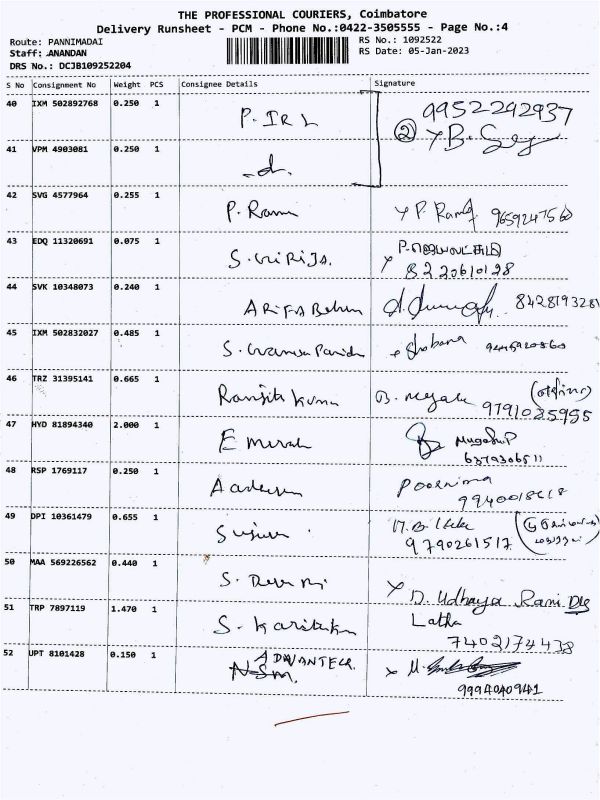 THE PROFESSIONAL COURIERS, Coimbatore
Delivery Runsheet - PCM - Phone No.:0422-3505555 - Page No.:4
Route: PANNIMADAI
RS No.: 1092522
Staff: ANANDAN
RS Date: 05-Jan-2023
DRS No.: DCJB109252204
S No Consignment No Weight PCS Consignee Details Signature
40 IXM 502892768 0.250 1 P. IRL 9952292937
41 VPM 4903081 0.250 1 -d. ②
42 SVG 4577964 0.255 1 P. Rami P. Rami 9659247560
43 EDQ 11320691 0.075 1 S. GIRIJA. P.
8220610128
44 SVK 10348073 0.240 1 ARIFA Begum
45 IXM 502832027 0.485 1 Shobana
46 TRZ 31395141 0.665 1 Ranjith Kumar B. Megala
9791025955
47 HYD 81894340 2.000 1 E
6379306511
48 RSP 1769117 0.250 1 Poornima
49 DPI 10361479 0.655 1
9790261517
50 MAA 569226562 0.440 1 S. D. Udhaya Rani
51 TRP 7897119 1.470 1 S. Latha
7402174438
52 UPT 8101428 0.150 1 ADWANTECH. M.
NSM. 9994040941